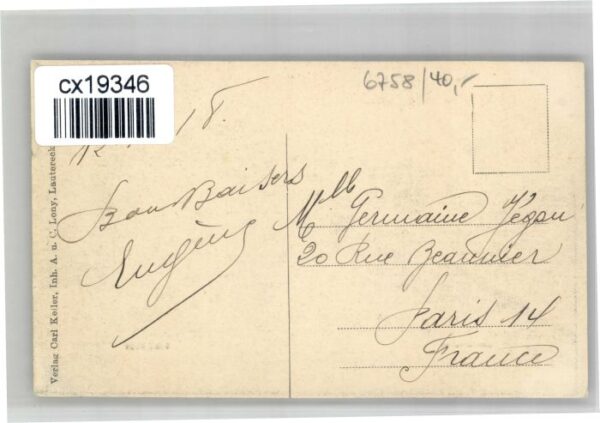 cx19346
6758/40,-
18.
Bons Baisers
Eugène
Mlle Germaine
20 Rue Beaunier
Paris 14
France
Verlag Carl Keller, Inh. A. u. C. Leny, Lautereck